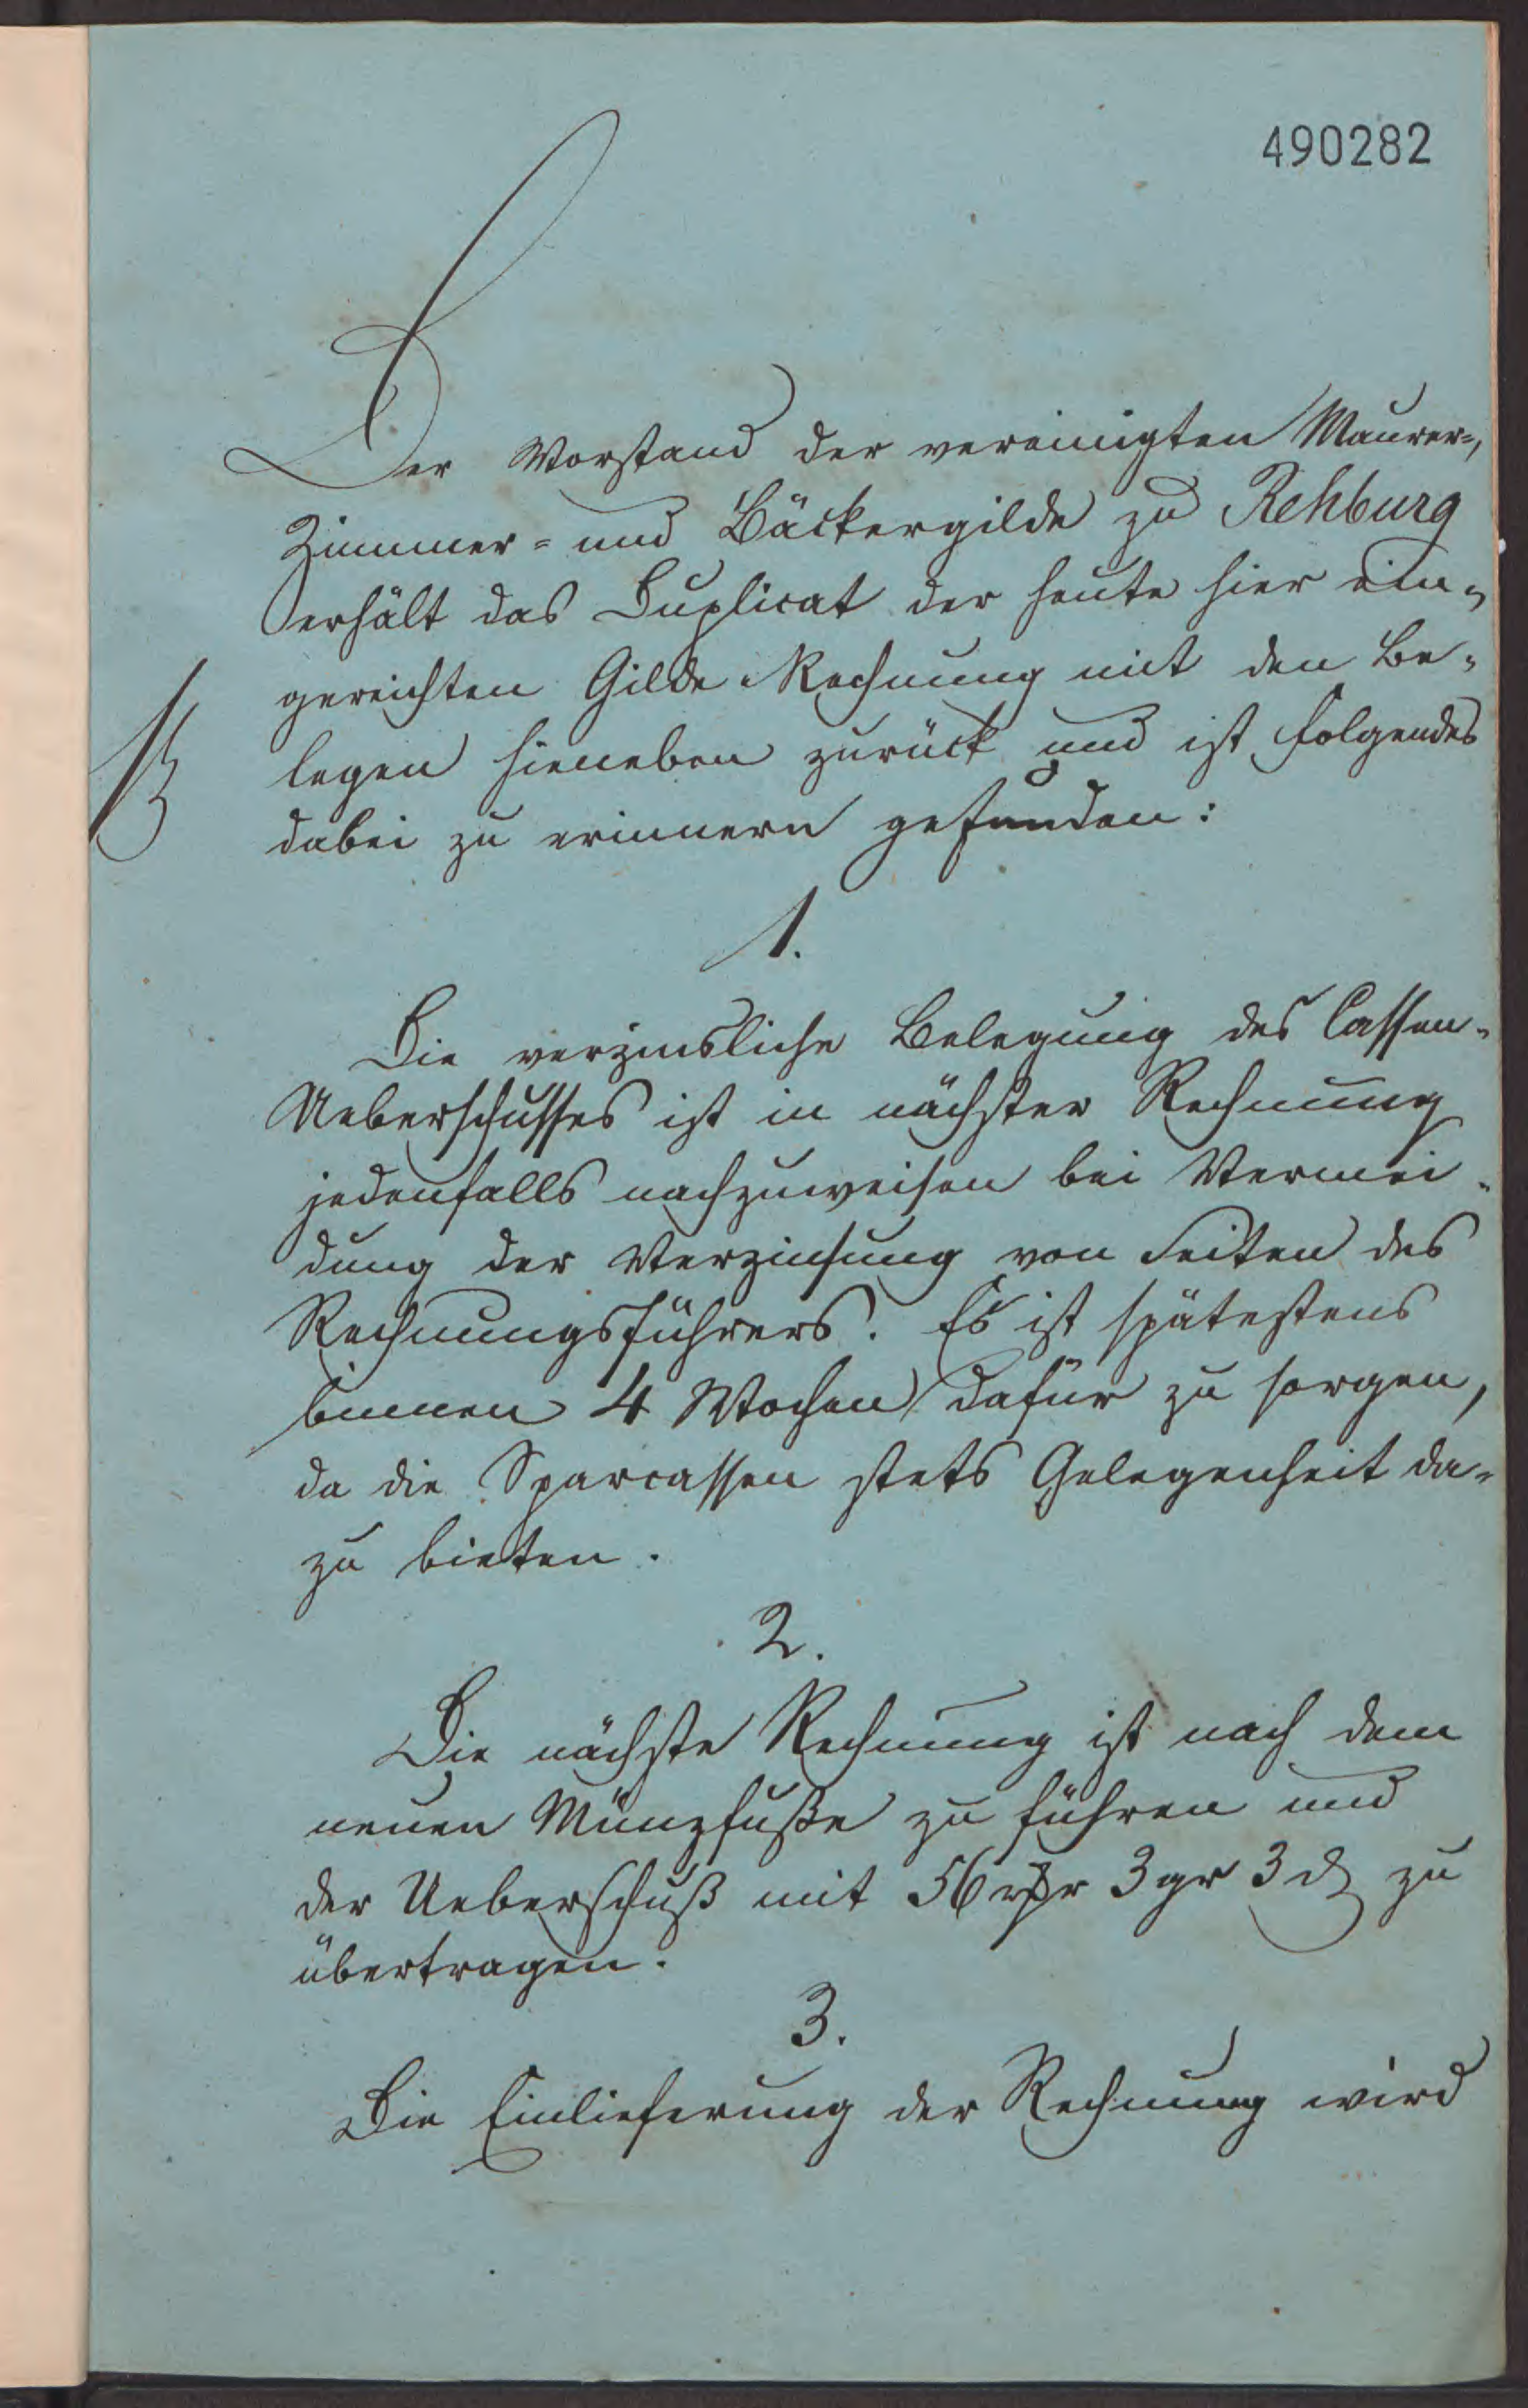 490282
Der Vorstand der vereinigten Maurer-,
Zimmer- und Bäckergilde zu Rehburg
erhält das Duplicat der heute hier ein-
gereichten Gilde-Rechnung mit den Be-
legen hieneben zurück und ist folgendes
dabei zu erinnern gefunden:
1.
Die verzinsliche Belegung des Cassen-
Ueberschusses ist in nächster Rechnung
jedenfalls nachzuweisen bei Vermei-
dung der Verzinsung von Seiten des
Rechnungsführers. Es ist spätestens
binnen 4 Wochen dafür zu sorgen,
da die Sparcassen stets Gelegenheit da-
zu bieten.
2.
Die nächste Rechnung ist nach dem
neuen Münzfuße zu führen und
der Ueberschuß mit 56 rthlr 3 gr 3 d zu
übertragen.
3.
Die Einlieferung der Rechnung wird